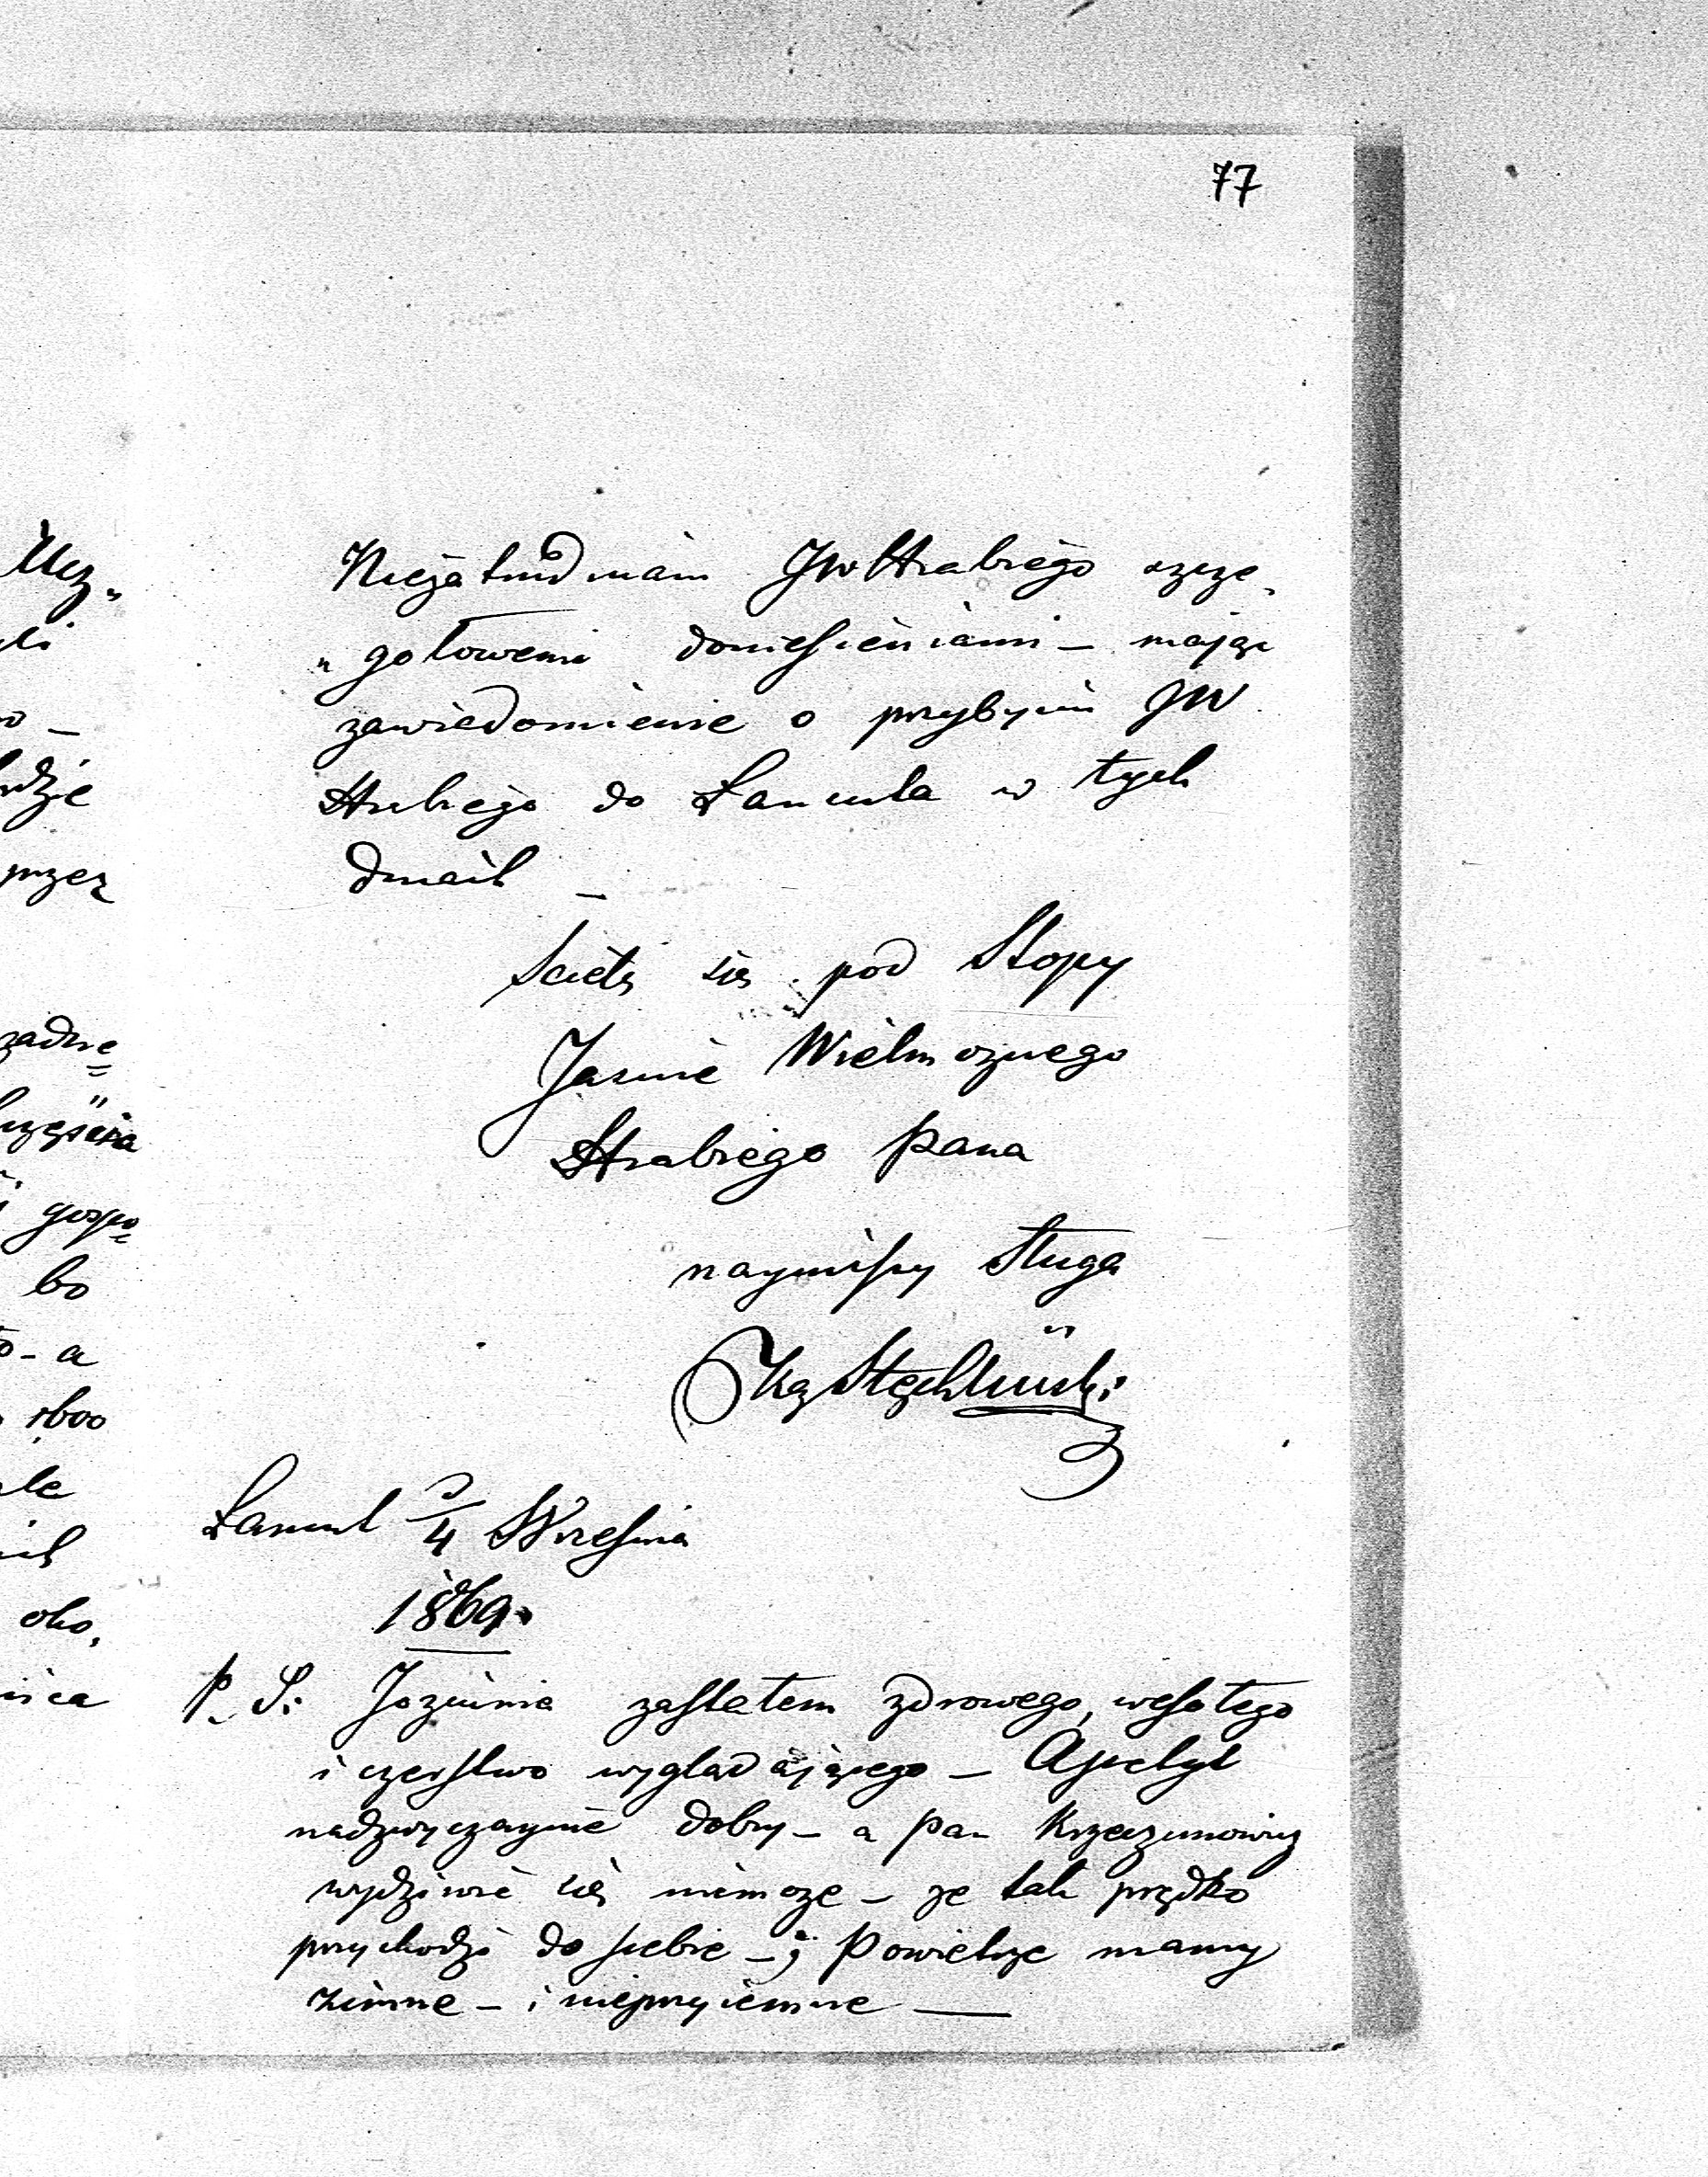 77
Niezatrudniam JWHrabiego szcze„
„gołowemi doniesieniami – mając
zawiadomienie o przybyciu JW
Hrabiego do Łańcuta w tych
dniach –
Ściele się pod Stopy
Jasnie Wielmożnego
Hrabiego Pana
nayniższy Sługa
Łańcut d/4 Wrzesnia
1869.
P. S: Joziunia zastałem zdrowego, wesołego
i czerstwo wyglądającego – Apetyt
nadzwyczaynie dobry – a Pan Krzeczunowicz
wydziwić się niemoże – że tak prędko
przychodzi do siebie – ; Powietrze mamy
zimne – i nieprzyiemne —